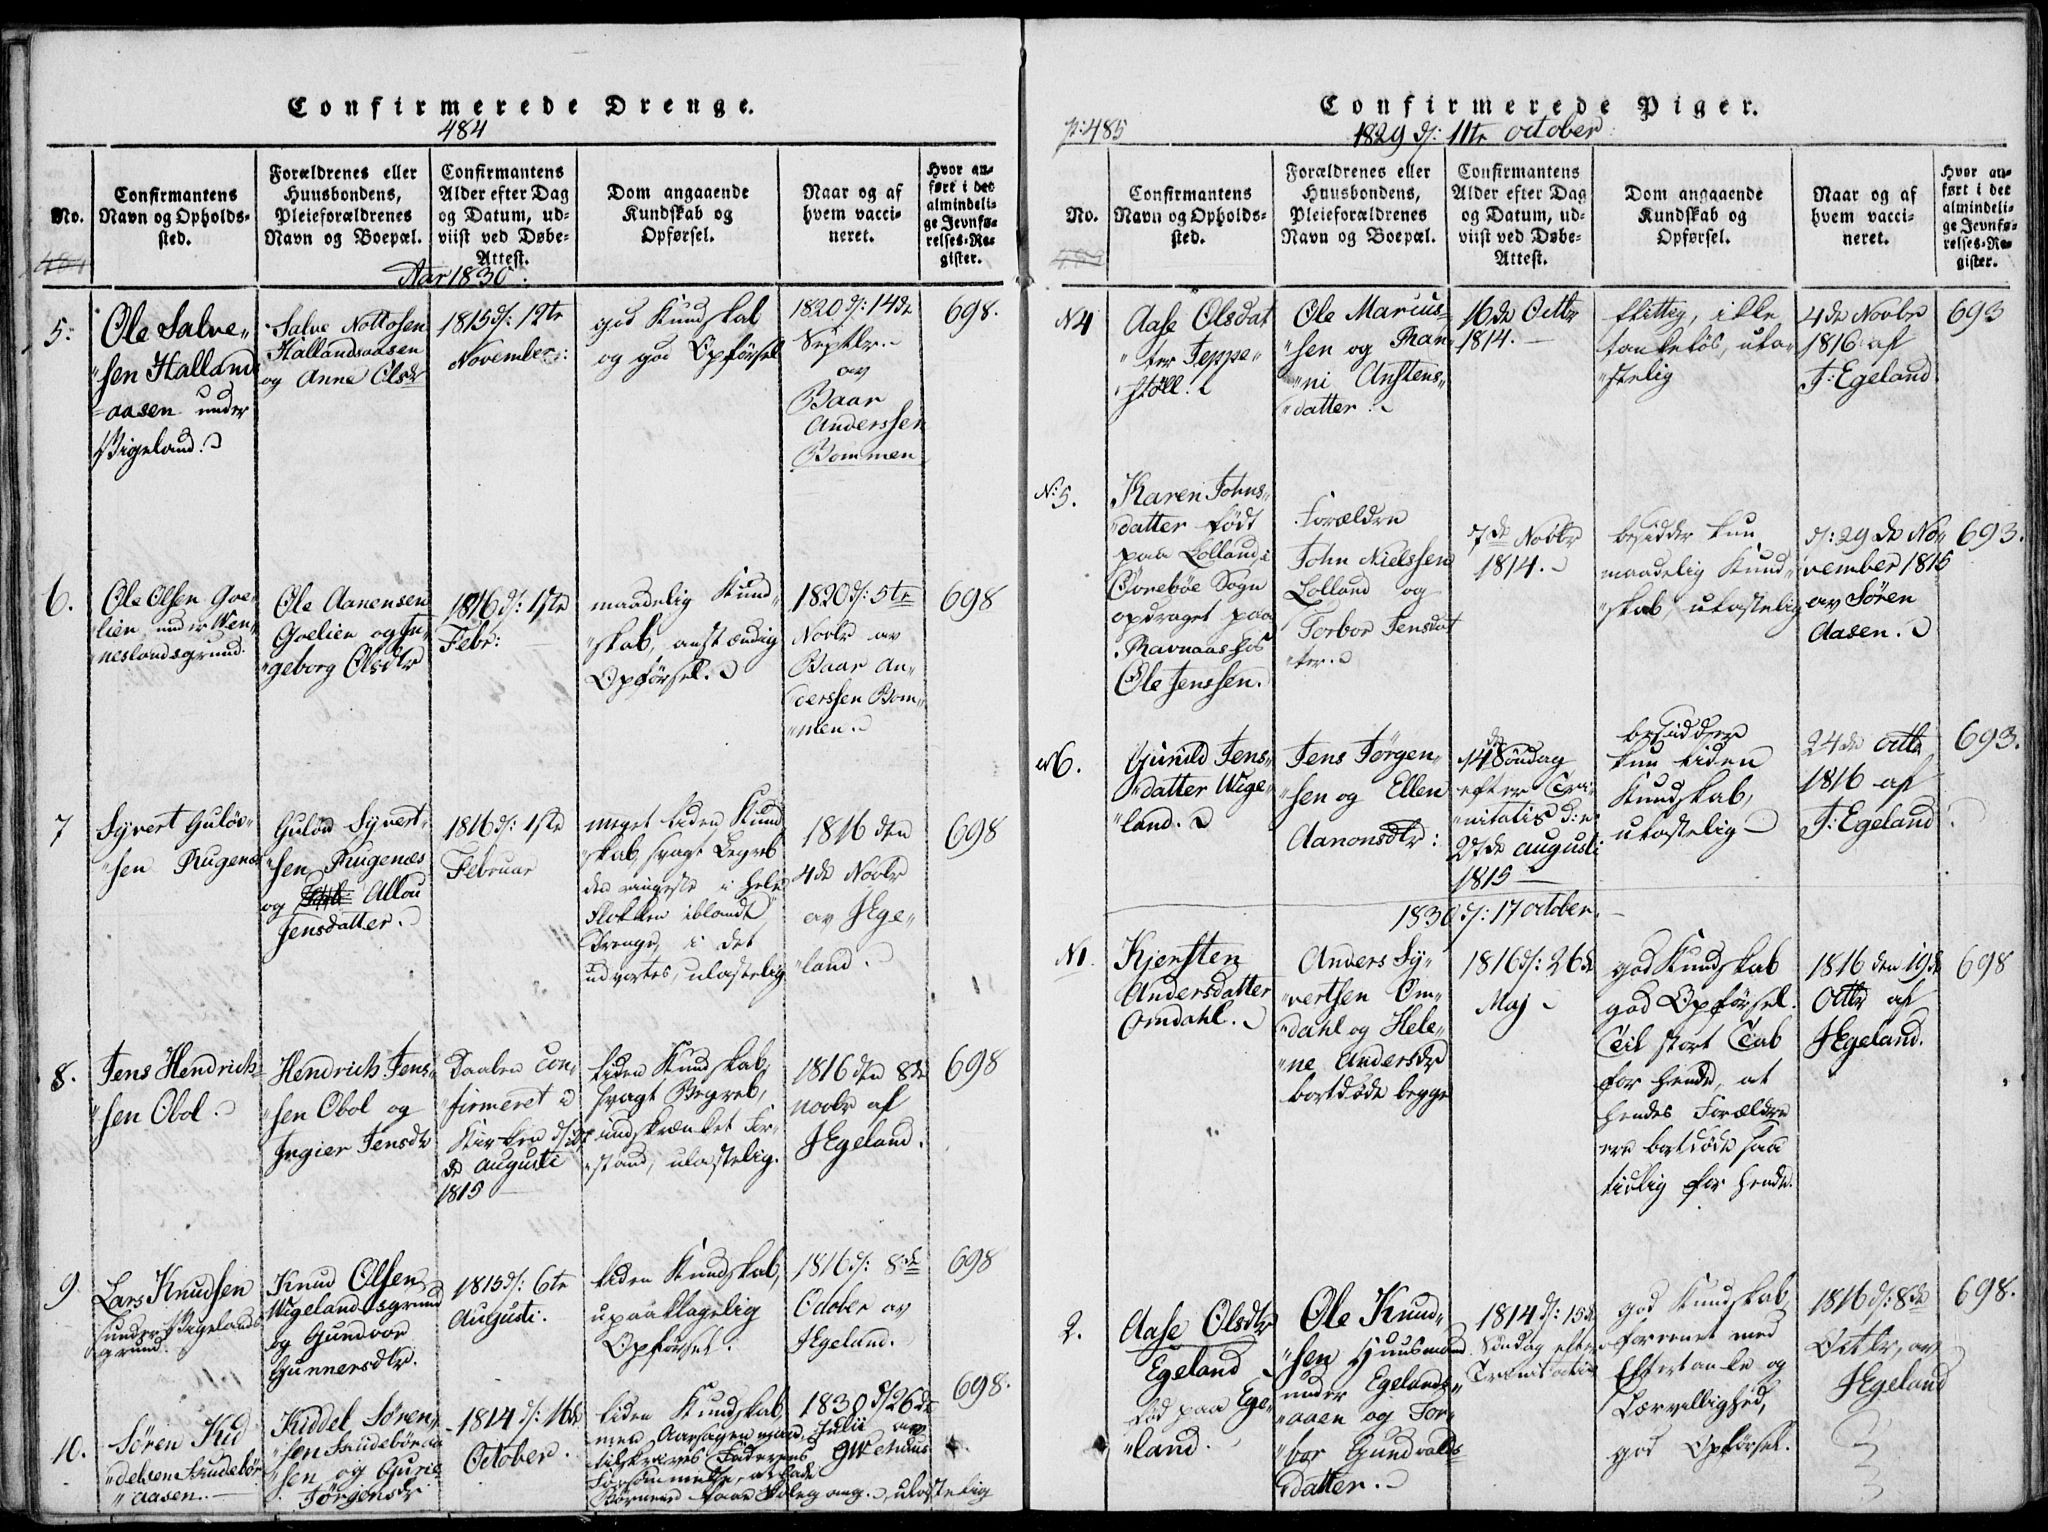 Confirmerede Drenge.
484
No.
Confirmantens
Navn og Opholds-
sted.
Forældrenes eller
Huusbondens,
Pleieforældrenes
Navn og Boepæl.
Confirmantens
Alder efter Dag
og Datum, ud-
viist ved Døbe-
Attest.
Dom angaaende
Kundskab og
Opførsel.
Naar og af
hvem vacci-
neret.
Hvor an-
ført i det
almindeli-
ge Jevnfø-
relses-Re-
gister.
Aar 1830.
5.
Ole Salve-
"sen Hallands
=aasen under
Vigeland.
Salve Nottosen
Hallandsaasen
og Anne Olsdr
1815 d: 12te
November:
god Kundskab
og god Opførsel
1820 d: 14de
Septbr.
av
Baar
Anderssen
Bommen
698.
6.
Ole Olsen Goe-
lien under Ven-
neslandsgrund.
Ole Aanensen
Goelien og In-
"geborg Olsdtr
1816 d: 1ste
Febr:
maadelig Kund-
"skab, anstændig
Opførsel.
1820 d: 5te
Novbr av
Baar An-
derssen Bom-
"men.
698
7
Syvert Guløv-
"sen Rugenæs
Guløv Syvert-
"sen Rugenæs
og Allou
Jensdatter.
1816 d: 1ste
Februar
meget liden Kund
"skab, svagt Begreb
den ringeste i hele
Flokken iblandt
Drenge, i det
udvortes, ulastelig
1816 den
4de Novbr
av J Ege-
"land.
698
8.
Jens Hendrich-
"sen Obol.
Hendrich Jens-
"sen Obol og
Ingier Jensdr
Daaben con-
"firmeret i
Kirken d:
de Augusti
1815
liden Kundskab,
svagt Begreb,
indskrænket For-
"stand, ulastelig.
1816 den 8de
Novbr af
J Egeland.
698
9
Lars Knudsen
under Vigelands
grund.
Knud Olsen
Wigelandsgrund
og Gundvor
Gunnersdtr.
1815 d: 6te
Augusti:
liden Kundskab,
upaaklagelig
Opførsel.
1816 d: 8de
October av
J Egeland.
698
10.
Søren Kid
"delsen Studebør
"aasen.
Kiddel Søren-
"sen
"sen og Gurie
Jørgensdr
1814 d: 16de
October.
liden Kundskab,
men Aarsagen maa
tilskrives Faderens
Forsømmelse, at lade
Børnene faae Skolegang. ulastelig
1830 d 26de
Julii av
698.
Confirmerede Piger.
p: 485
1829 d: 11te October
No.
Confirmantens
Navn og Opholds-
sted.
Forældrenes eller
Huusbondens,
Pleieforældrenes
Navn og Boepæl.
Confirmantens
Alder efter Dag
og Datum, ud-
viist ved Døbe-
Attest.
Dom angaaende
Kundskab og
Opførsel.
Naar og af
hvem vacci-
neret.
Hvor an-
ført i det
almindeli-
ge Jevnfø-
relses-Re-
gister.
N4
Aase Olsdat
"ter Teppe-
"støll.
Ole Marcus-
"sen og Ran-
"ni Anstens-
"datter.
16de Octbr
1814.
flittig, ikke
tankeløs, ula-
"stelig
4de Novbr
1816 af
J: Egeland
693
N:5.
Karen Johns-
"datter født
paa Lolland i
Øvrebøe Sogn
opdraget paa
Ravnaas hos
Ole Jenssen.
Forældre
John Nielssen
Lolland og
Torbor Jensdat
"ter.
7de Novbr
1814.
besidder kun
maadelig Kund-
"skab, ulastelig
d: 29de No-
"vember 1815
av Søren
Aasen.
693.
N6.
Gunild Jens-
"datter Wige-
"land.
Jens Jørgen-
"sen og Ellen
Aanonsdtr:
14de Søndag
efter Tri-
"nitatis d:e:
27de Augusti
1815
besidder
kun liden
Kundskab,
ulastelig
24de Octbr
1816 af
J: Egeland
693.
1830 d: 17 October.
N1
Kjersten
Andersdatter
Omdahl.
Anders Sy-
"vertsen Om-
"dahl og Hele-
"ne Andersdr
bortdøde begge
1816 d: 26de
Maj
god Kundskab
god Opførsel.
Til stort Tab
for hende, at
hendes Forældre
ere bortdøde saa
tidlig for hende.
1816 den 19de
Octbr af
J Egeland.
698
2.
Aase Olsdtr
Egeland
fød paa Ege-
"land.
Ole Knud-
"sen Huusmand
under Egelands-
"aaen og Tor-
"bor Gundvalds
"datter.
1814 d: 15de
Søndag efter
Trinitatis
god Kundskab
forenet med
Eftertanke og
Lærvillighed,
god Opførsel.
1816 d: 8de
Octbr, av
J Egeland
698.